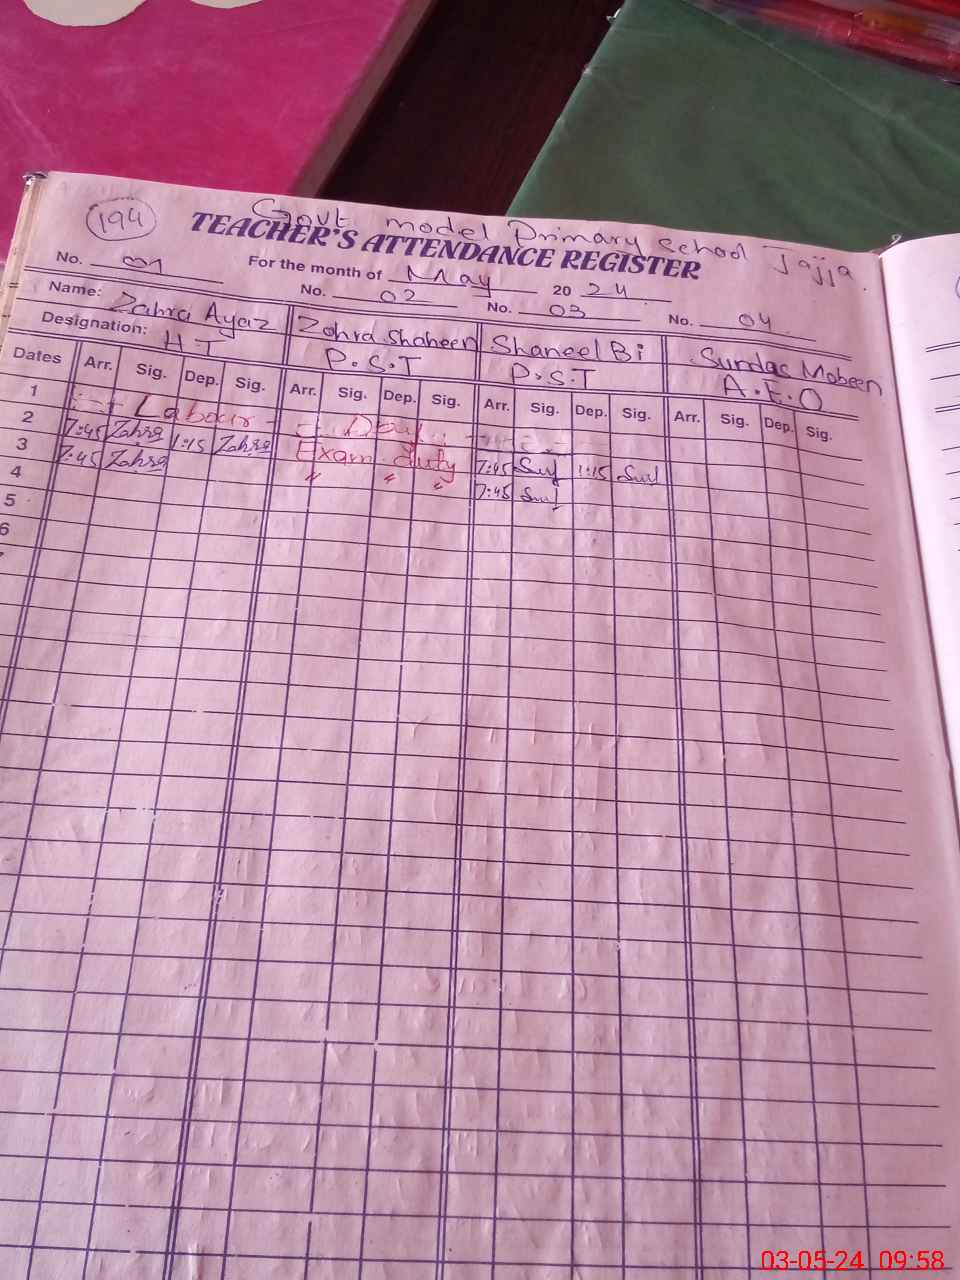 194
Govt model Primary School Jajja.
TEACHER'S ATTENDANCE REGISTER
For the month of May 20 24
No. 01 No. 02 No. 03 No. 04
Name: Zahra Ayaz Zohra Shaheen Shaneel Bi Sundas Mobeen
Designation: H T P.S.T P.S.T A.E.O
Dates Arr. Sig. Dep. Sig. Arr. Sig. Dep. Sig. Arr. Sig. Dep. Sig. Arr. Sig. Dep. Sig.
1 Labour Day
2 7:45 Zahra 1:15 Zahra Exam duty 7:45 1:15
3 7:45 Zahra " " " 7:45
4
5
6
03-05-24 09:58